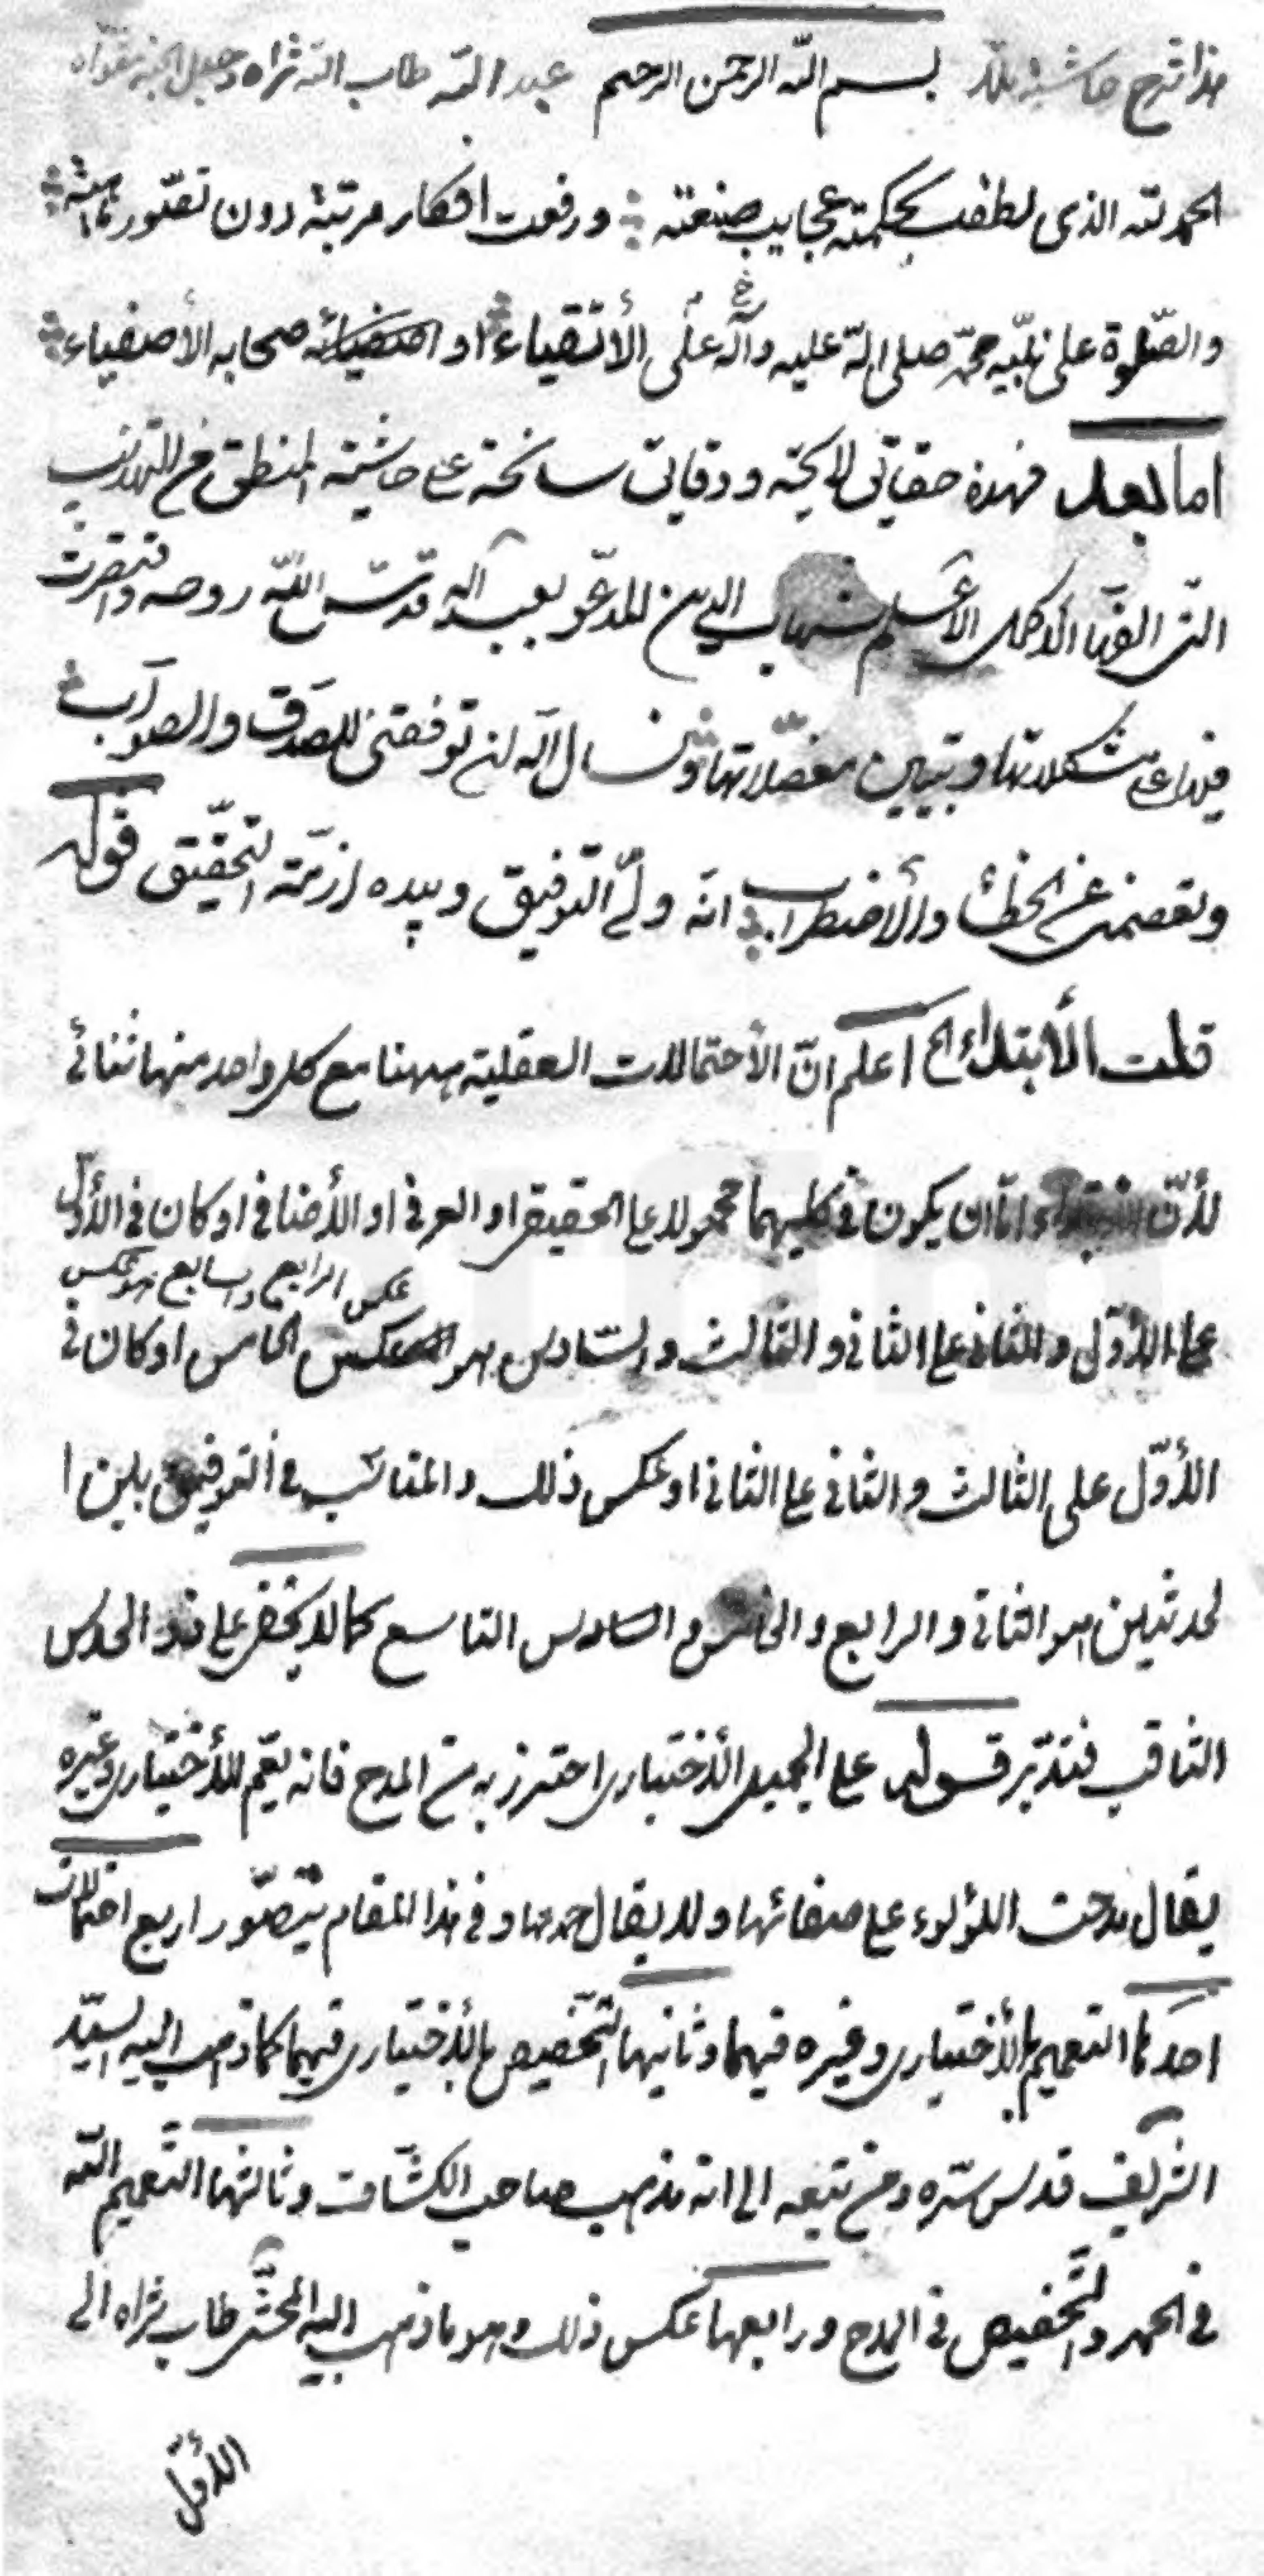 هذا شرح حاشية ملا بسم الله الرحمن الرحيم عبد الله طاب الله ثراه وجعل الجنة مثواه
الحمد لله الذى لطفت بحكمته عجايب صنعته ورفعت افكار مرتبة دون تصور ماهيته
والصلوة على نبيه محمد صلى الله عليه وآله على الأتقياء او اصفيائه صحابه الأصفياء
اما بعد فهذه حقايق لايحة ودقايق سانحة على حاشية المنطق من التهذيب
التى الفها الأكمل الأعلم شهاب الدين المدعو بعبد اله قدس الله روحه واقتصرت
فيها على مشكلاتها وتبيين معضلاتها ونسال اله ان توفقنى للصدق والصواب
وتعصمنى عن الخطأ والأضطراب انه ولى التوفيق وبيده ازمة التحقيق قوله
قلت الأبتداء الخ اعلم ان الأحتمالات العقلية ههنا مع كل واحد منها ثنائى
لأن الأبتداء اما ان يكون فى كليهما محمولا على الحقيقى او العرفى او الأضافى او كان فى الأول
عكس الرابع والسابع هو عكس
على الأول والثانى على الثانى والثالث والسادس هو عكس الخامس او كان فى
الأول على الثالث والثانى على الثانى او عكس ذلك والمناسب فى التوفيق بين ا
لحدثين هو الثانى والرابع والخامس والسادس التاسع كما لا يخفى على ذى الحدس
الثاقب فتدبر قوله على الجميل الأختيارى احترز به من المدح فانه يعم للأختيارى وغيره
يقال مدحت اللؤلوء على صفائها ولا يقال حمدها وفى هذا المقام يتصور اربع احتمالات
احدها التعميم بالأختيارى وغيره فيهما وثانيها التخصيص بالأختيارى فيهما كما ذهب اليه السيد
الشريف قدس سره ومن تبعه الى انه مذهب صاحب الكشاف وثالثها التعميم
فى الحمد والتخصيص فى المدح ورابعها عكس ذلك وهو ما ذهب اليه المحشى طاب ثراه الى
الأول